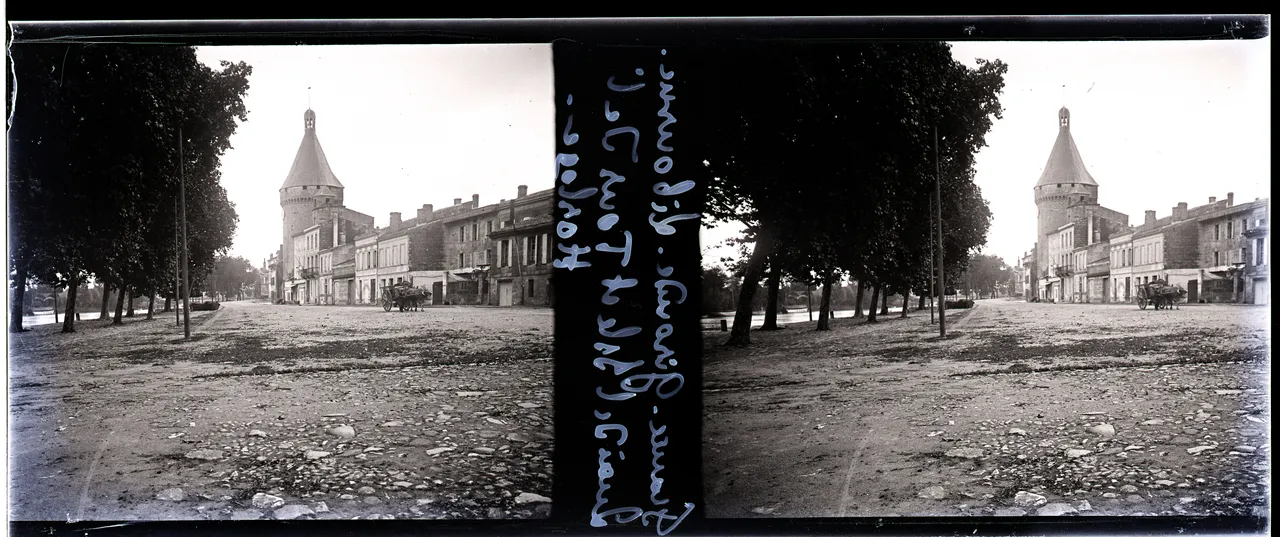 France. Gironde. Libourne.
Quai de l'Isle et Tour de l'
Horloge.